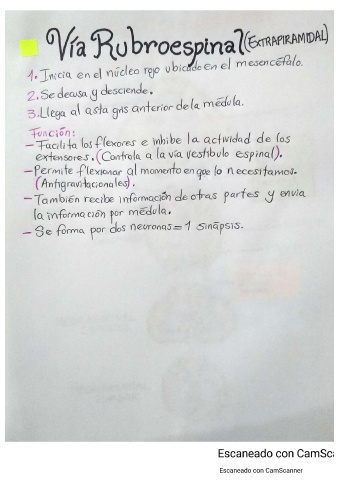 Vía Rubroespinal (EXTRAPIRAMIDAL)
1. Inicia en el núcleo rojo ubicado en el mesencéfalo.
2. Se decusa y desciende.
3. Llega al asta gris anterior de la médula.
Función:
- Facilita los flexores e inhibe la actividad de los
extensores. (Controla a la vía vestíbulo espinal).
- Permite flexionar al momento en que lo necesitamos.
(Antigravitacionales).
- También recibe información de otras partes y envia
la información por médula.
- Se forma por dos neuronas = 1 sinápsis.
Escaneado con CamSc
Escaneado con CamScanner